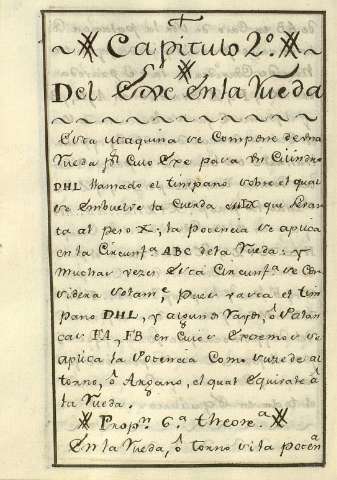 Capitulo 2º.
Del Exe en la Rueda
Esta Maquina se Compone de vna
Rueda por Cuio Exe pasa vn Cilindro
DHL llamado el timpano sobre el qual
se enbuelve la Cuerda que levan
ta al peso X; la potencia se aplica
en la Circunfª ABC de la Rueda: y
muchas vezes Esta Circunfª se Con
sidera solamᵉ, pues vasta el tim
pano DHL, y algunos Rayos, ô Palan
cas FA, FB en Cuios Extremos se
aplica la Potencia Como suzede al
torno, ô Argano, el qual Equivale â
la Rueda.
Propⁿ. 6ª. theoreª.
En la Rueda, ô torno si la potenª